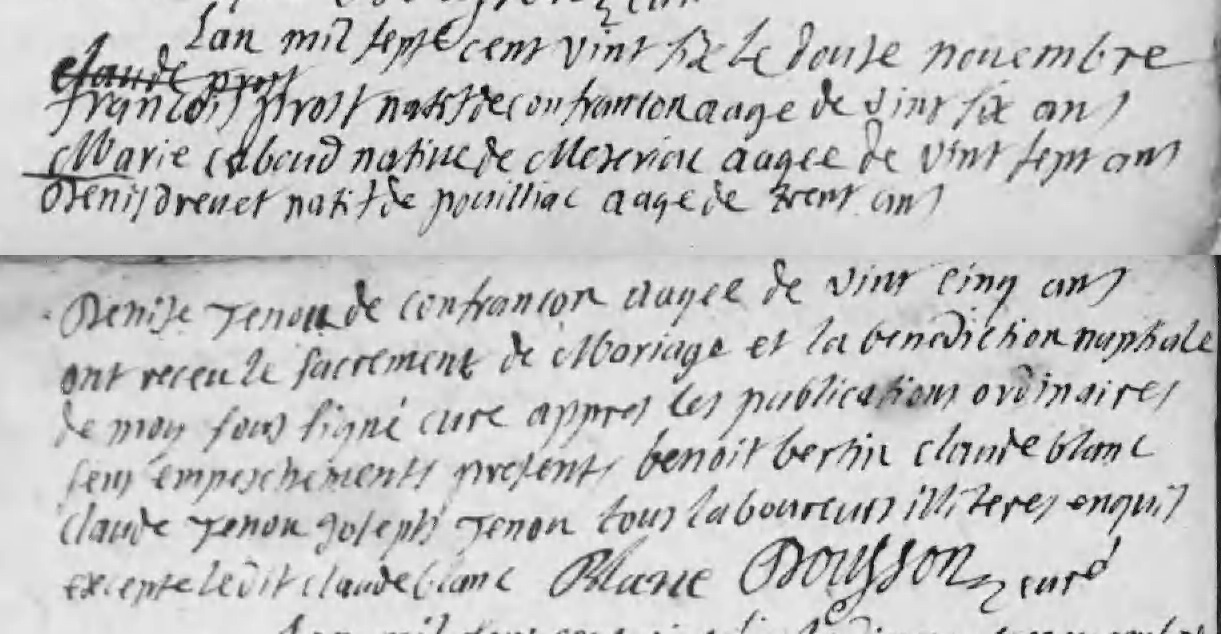 Lan mil sept cent vint six le douse novembre
claude prost
francois prost natif de confrancon aage de vint six ans
Marie caboud natiue de Meseriac aagee de vint sept ans
Denis dreuet natif de pouilliac aage de trent ans
Denise Tenon de confrancon aagee de vint cinq ans
ont receu le sacrement de Mariage et la benediction nuptiale
de moy sous signé cure appres les publications ordinaires
sens empeschements presents benoit bertin claude blanc
claude Tenon Joseph Tenon tous laboureurs illiteres enquis
excepte ledit claude blanc Blanc Dousson curé